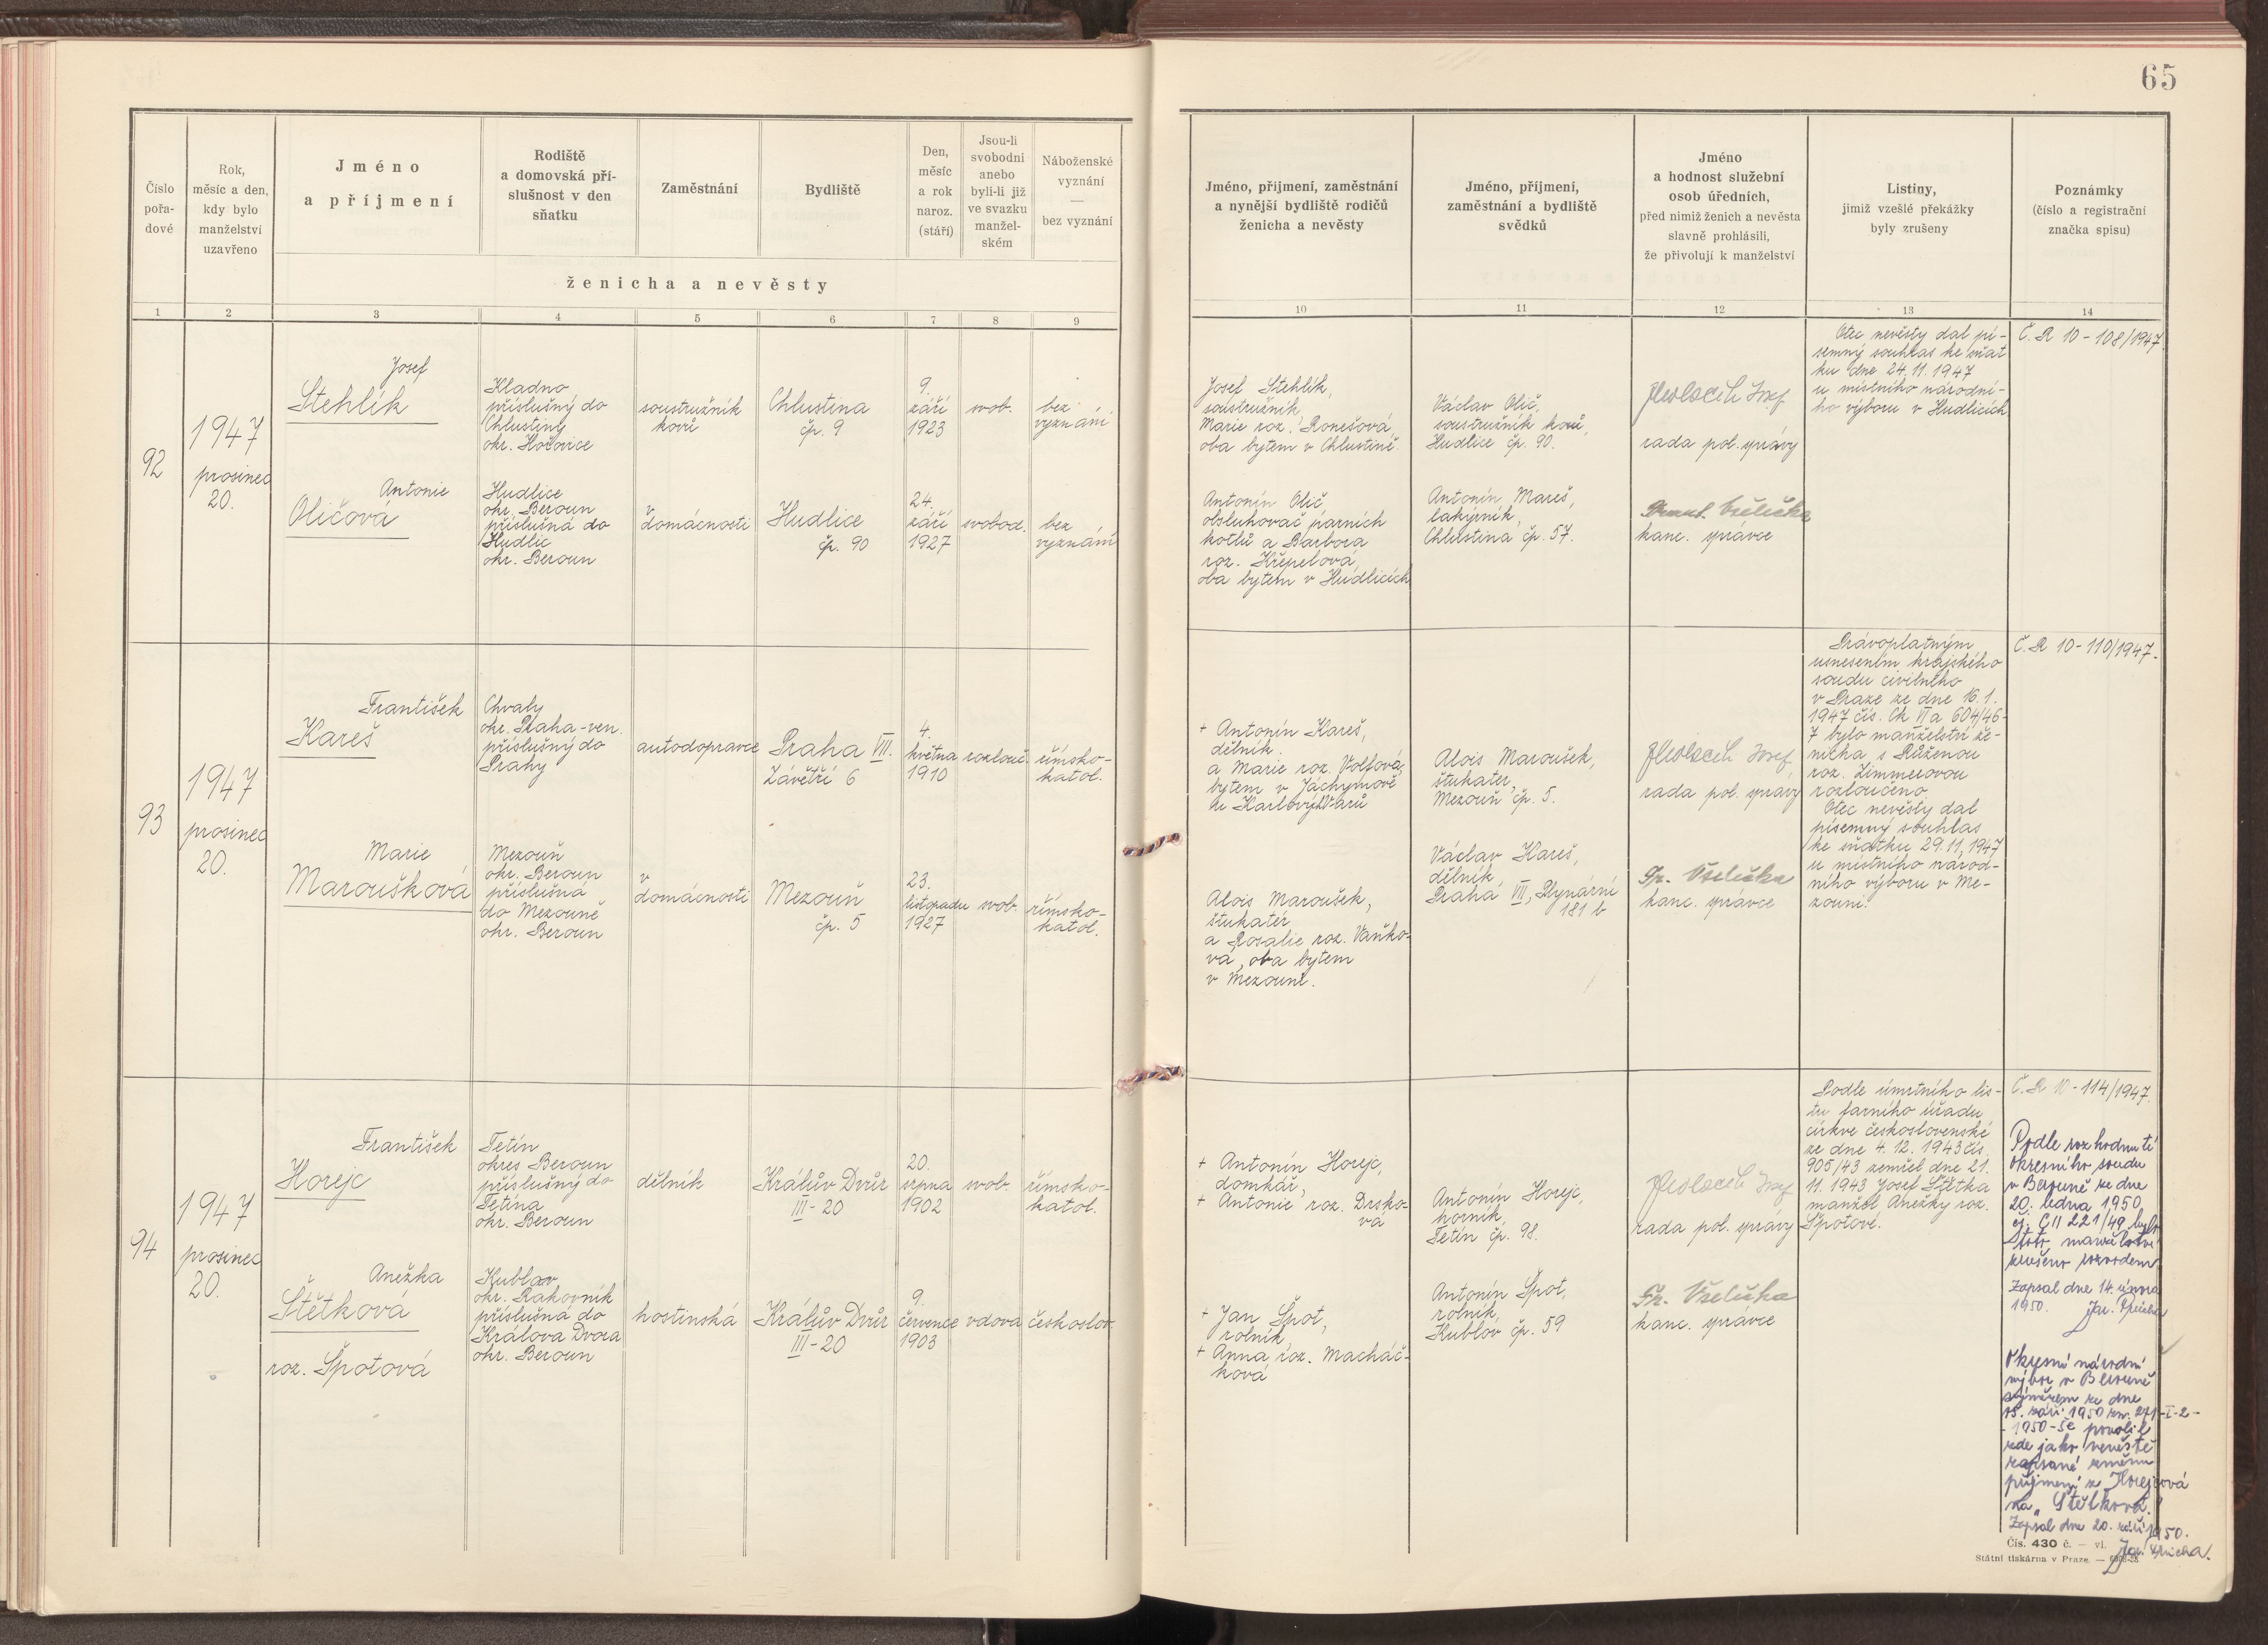 65
Číslo
pořa-
dové
Rok,
měsíc a den,
kdy bylo
manželství
uzavřeno
Jméno
a příjmení
Rodiště
a domovská pří-
slušnost v den
sňatku
Zaměstnání
Bydliště
Den,
měsíc
a rok
naroz.
(stáří)
Jsou-li
svobodni
anebo
byli-li již
ve svazku
manžel-
ském
Náboženské
vyznání
—
bez vyznání
ženicha a nevěsty
Jméno, přijmení, zaměstnání
a nynější bydliště rodičů
ženicha a nevěsty
Jméno, příjmení,
zaměstnání a bydliště
svědků
Jméno
a hodnost služební
osob úředních,
před nimiž ženich a nevěsta
slavně prohlásili,
že přivolují k manželství
Listiny,
jimiž vzešlé překážky
byly zrušeny
Poznámky
(číslo a registrační
značka spisu)
1
2
3
4
5
6
7
8
9
10
11
12
13
14
92
1947
prosinec
20.
Josef
Stehlík
Kladno
příslušný do
Chlustiny
okr. Hořovice
soustružník
kovů
Chlustina
čp. 9
9.
září
1923
svob.
bez
vyznání
Antonie
Oličová
Hudlice
okr. Beroun
příslušná do
Hudlic
okr. Beroun
v
domácnosti
Hudlice
čp. 90
24.
září
1927
svobod.
bez
vyznání
Josef Stehlík,
soustružník,
Marie roz. Ronešová,
oba bytem v Chlustině.
Antonín Olič,
obsluhovač parních
kotlů a Barbora
roz. Křepelová,
oba bytem v Hudlicích
Václav Olič,
soustružník kovů,
Hudlice čp. 90.
Antonín Mareš,
lakýrník,
Chlustina čp. 57.
Josef
rada pol. správy
Všelička
kanc. správce
Otec nevěsty dal pí-
semný souhlas ke sňat
ku dne 24.11.1947
u místního národní-
ho výboru v Hudlicích
Č. R 10 - 108/1947.
93
1947
prosinec
20.
František
Kareš
Chvaly
okr. Praha-ven.
příslušný do
Prahy
autodopravce
Praha VII.
Závětří 6
4.
května
1910
rozlouč.
římsko-
katol.
Marie
Maroušková
Mezouň
okr. Beroun
příslušná
do Mezouně
okr. Beroun
v
domácnosti
Mezouň
čp. 5
23.
listopadu
1927
svob.
římsko-
katol.
+ Antonín Kareš,
dělník
a Marie roz. Volfová,
bytem v Jáchymově
u Karlových Varů
Alois Maroušek,
štukatér
a Rosalie roz. Vaňko-
vá, oba bytem
v Mezouni.
Alois Maroušek,
štukater,
Mezouň čp. 5.
Václav Kareš,
dělník,
Praha VII, Plynární
181 b
Josef
rada pol. správy
Fr. Všelička
kanc. správce
Právoplatným
usnesením krajského
soudu civilního
v Praze ze dne 16.1.
1947 čís. Ck VI a 604/46-
7 bylo manželství že-
nicha s Růženou
roz. Zimmerovou
rozloučeno.
Otec nevěsty dal
písemný souhlas
ke sňatku 29.11.1947
u místního národ-
ního výboru v Me-
zouni.
Č. R 10 - 110/1947.
94
1947
prosinec
20.
František
Horejc
Tetín
okres Beroun
příslušný do
Tetína
okr. Beroun
dělník
Králův Dvůr
III - 20
20.
srpna
1902
svob.
římsko-
katol.
Anežka
Štětková
roz. Špotová
Kublov
okr. Rakovník
příslušná do
Králova Dvora
okr. Beroun
hostinská
Králův Dvůr
III - 20
9.
července
1903
vdova
českoslov.
+ Antonín Horejc,
domkář,
+ Antonie roz. Drsko-
vá
+ Jan Špot,
rolník,
+ Anna roz. Macháč-
ková
Antonín Horejc,
horník,
Tetín čp. 98.
Antonín Špot,
rolník,
Kublov čp. 59
Josef
rada pol. správy
Fr. Všelička
kanc. správce
Podle úmrtního lis-
tu farního úřadu
církve československé
ze dne 4.12.1943 čís.
905/43 zemřel dne 21.
11.1943 Josef Štětka
manžel Anežky roz.
Špotové.
Č. R 10 - 114/1947.
Podle rozhodnutí
okresního soudu
v Berouně ze dne
20. ledna 1950
čj. C II 221/49 bylo
toto manželství
zrušeno rozvodem
Zapsal dne 14. února
1950.
Okresní národní
výbor v Berouně
výměrem ze dne
15. září 1950 zn. 271-I-2-
-1950-Šč povolil
zde jako nevěstě
zapsané změnu
příjmení z Horejcová
na „Štětková".
Zapsal dne 20. září 1950.
Čís. 430 č. — vl.
Státní tiskárna v Praze. —